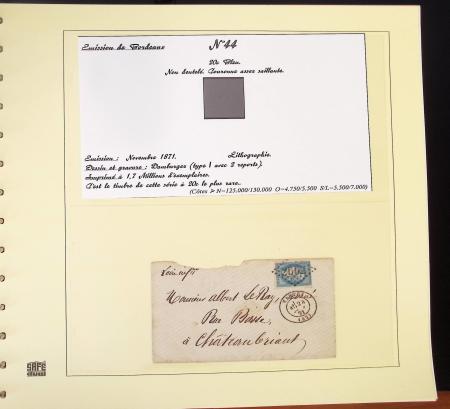 Emission de Bordeaux N°44
20c Bleu.
Non dentelé. Couronne assez saillante.
Emission : Novembre 1871. Lithographie.
Dessin et gravure : Dambourgez (type 1 avec 2 reports).
Imprimé à 1,7 Millions d'exemplaires.
C'est le timbre de cette série à 20c le plus rare.
(Côtes > N=125.000/130.000 O=4.750/5.500 S/L=5.500/7.000)
Monsieur Albert Le Ray,
Rue Basse,
à Châteaubriant
SAFE